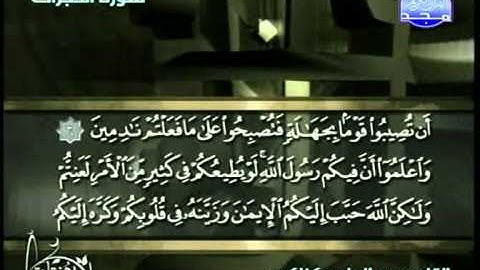 سورة الحجرات
المجد
أَن تُصِيبُوا۟ قَوْمًۢا بِجَهَـٰلَةٍ فَتُصْبِحُوا۟ عَلَىٰ مَا فَعَلْتُمْ نَـٰدِمِينَ ٦
وَٱعْلَمُوٓا۟ أَنَّ فِيكُمْ رَسُولَ ٱللَّهِ ۚ لَوْ يُطِيعُكُمْ فِى كَثِيرٍ مِّنَ ٱلْأَمْرِ لَعَنِتُّمْ
وَلَـٰكِنَّ ٱللَّهَ حَبَّبَ إِلَيْكُمُ ٱلْإِيمَـٰنَ وَزَيَّنَهُۥ فِى قُلُوبِكُمْ وَكَرَّهَ إِلَيْكُمُ